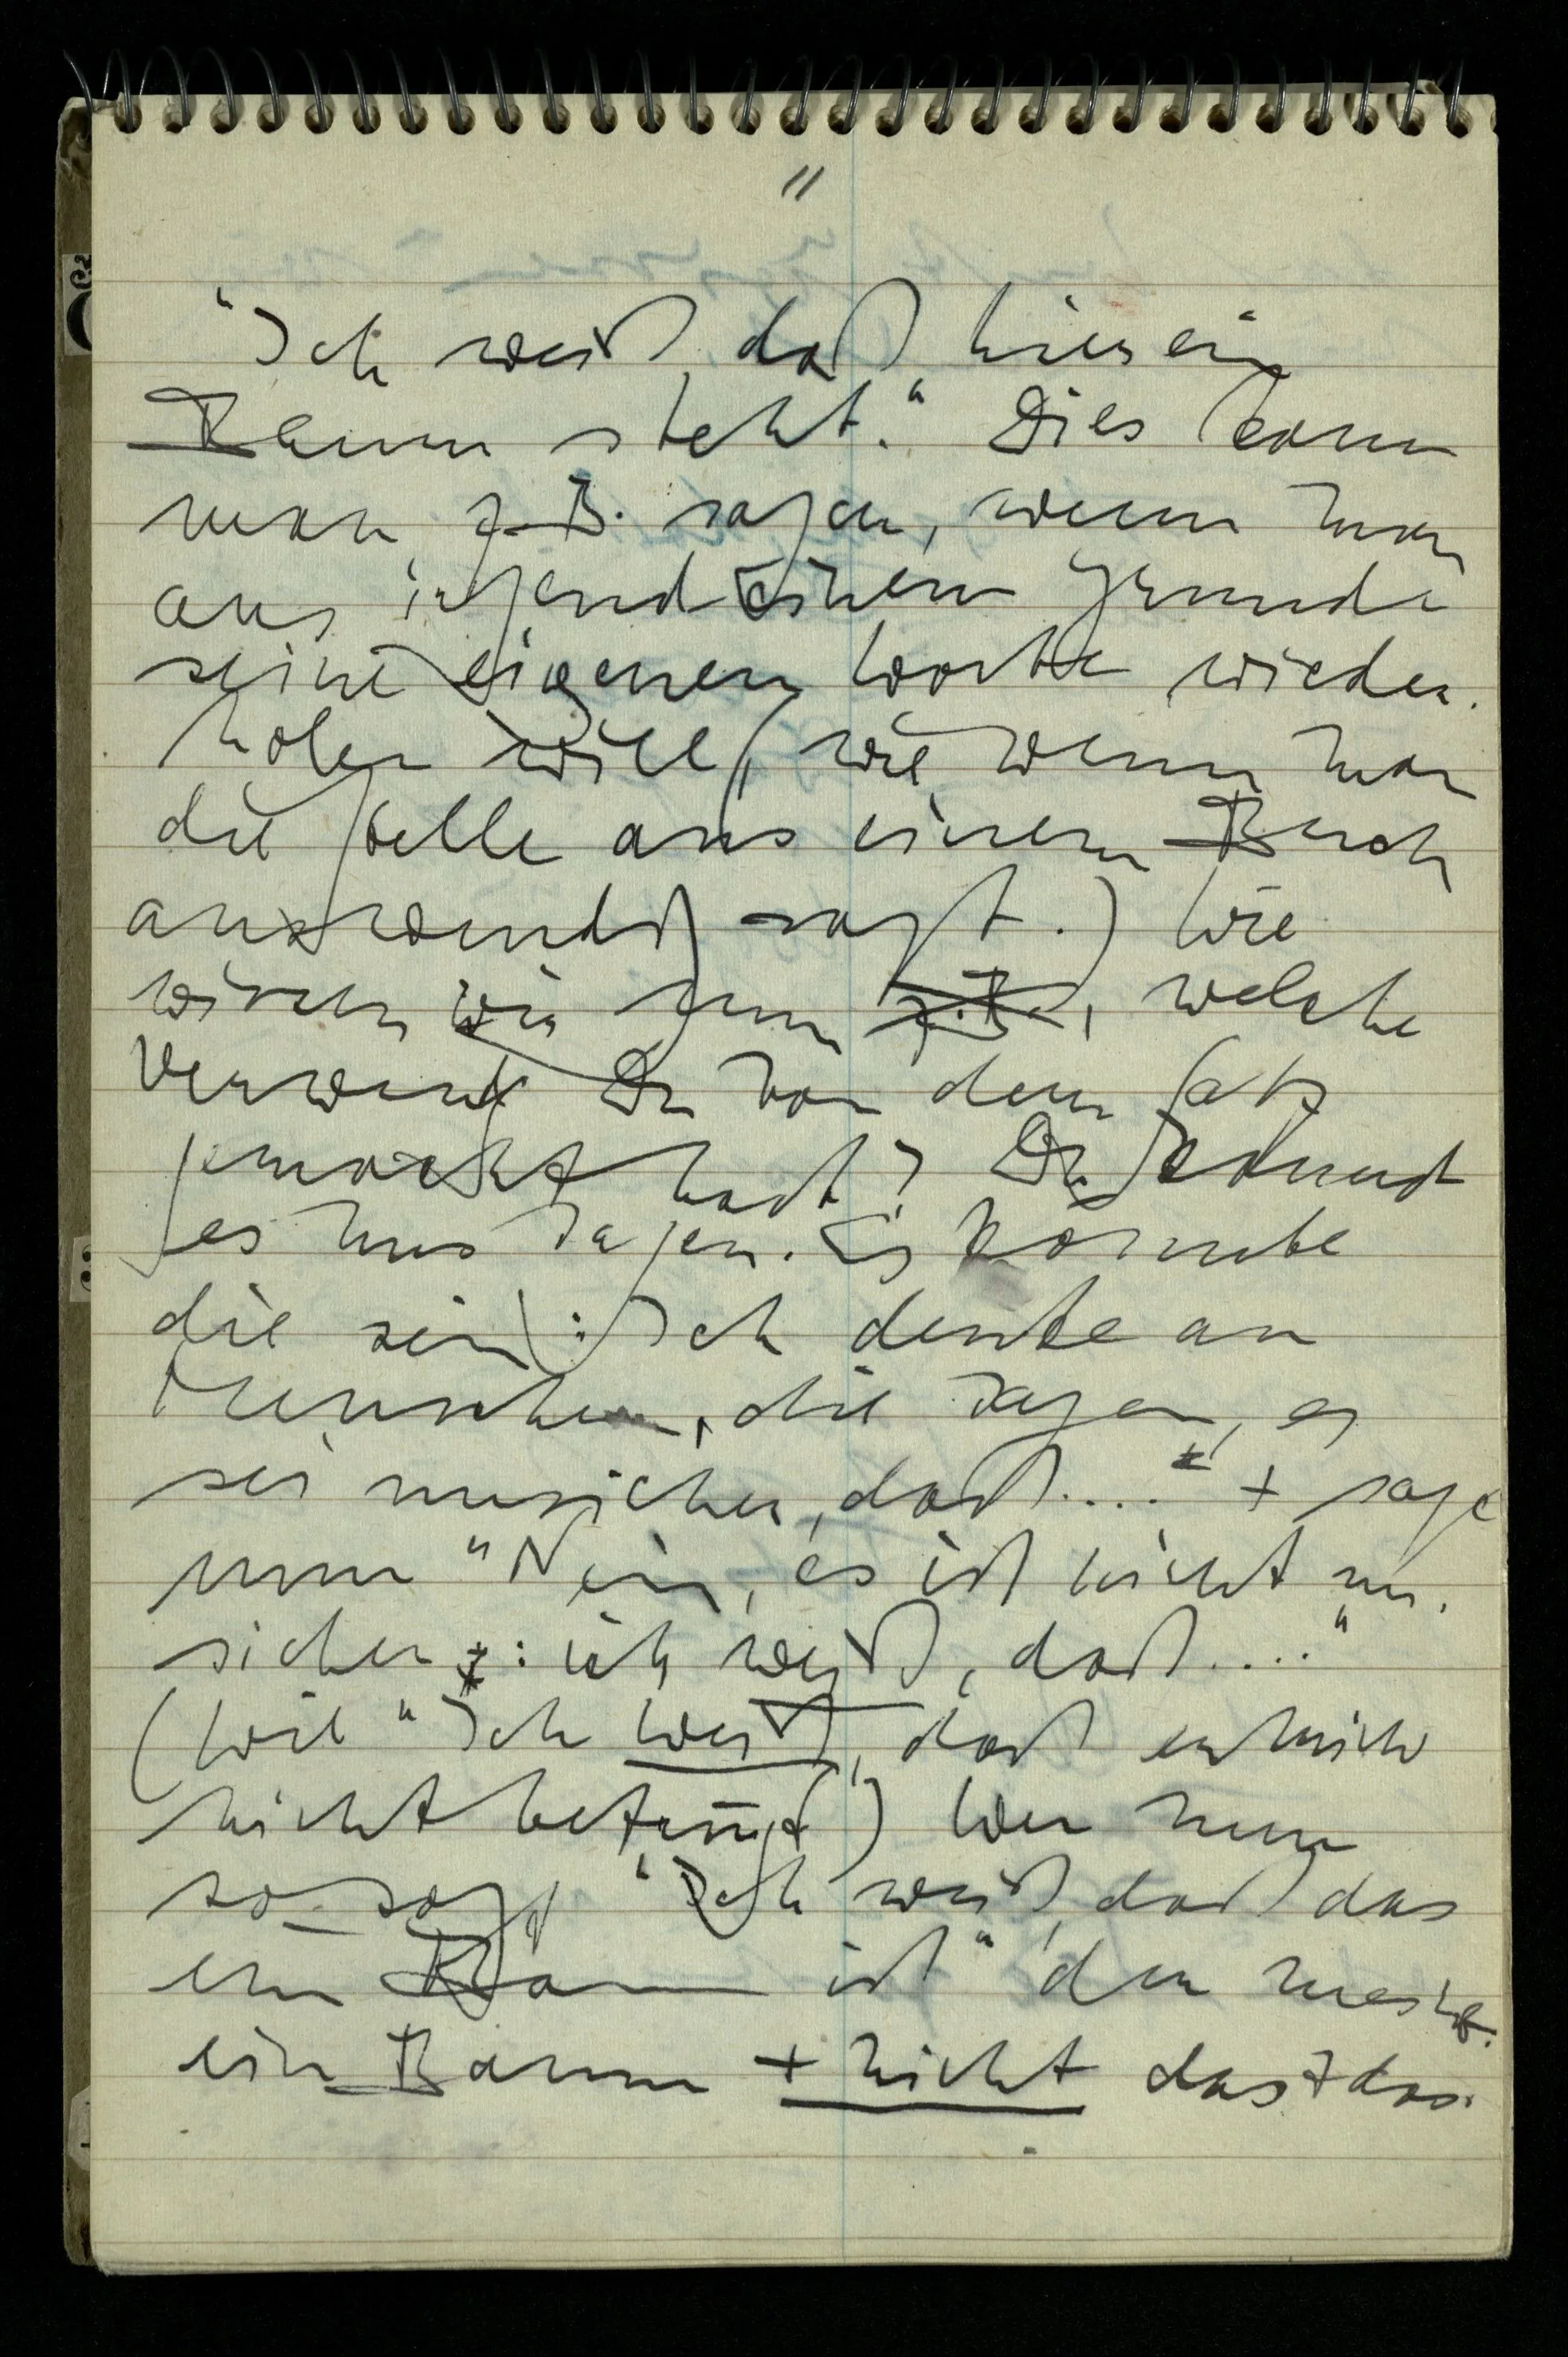 "
"Ich weiß, daß hier ein
Baum steht." Dies kann
man z.B. sagen, wenn man
aus irgend einem Grunde
seine eigenen Worte wieder-
holen will, (wie wenn man
die Stelle aus einem Buch
auswendig sagt.) Wie
wissen wir nun z.B., welche
Verwendg Du von dem Satz
gemacht hast? Du kannst
es uns sagen. Es könnte
die sein: Ich denke an
Menschen, die sagen, es
sei unsicher, daß...." + sage
nun "Nein, es ist nicht un-
sicher: ich weiß, daß...."
(Wie "Ich weiß, daß er mich
nicht betrügt) Wer nun
so sagt "Ich weiß, daß das
ein Baum ist" der meint
ein Baum + nicht das + das.